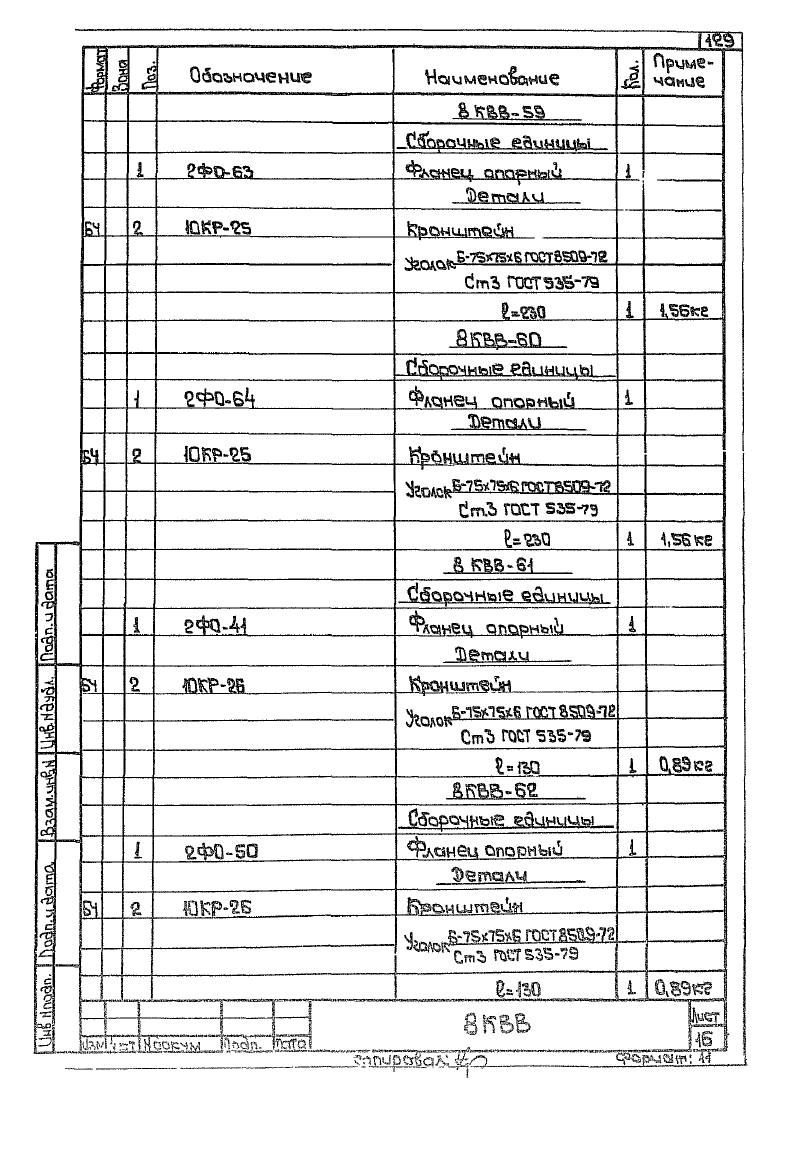 129
Формат Зона Поз. Обозначение Наименование Кол. Приме-
чание
8КВВ-59
Сборочные единицы
1 2ФО-63 Фланец опорный 1
Детали
БЧ 2 10КР-25 Кронштейн
Уголок Б-75х75х6 ГОСТ 8509-72
Ст3 ГОСТ 535-79
ℓ=230 1 1,56кг
8КВВ-60
Сборочные единицы
1 2ФО-64 Фланец опорный 1
Детали
БЧ 2 10КР-25 Кронштейн
Уголок Б-75х75х6 ГОСТ 8509-72
Ст.3 ГОСТ 535-79
ℓ=230 1 1,56 кг
8КВВ-61
Сборочные единицы
1 2ФО-41 Фланец опорный 1
Детали
БЧ 2 10КР-26 Кронштейн
Уголок Б-75х75х6 ГОСТ 8509-72
Ст3 ГОСТ 535-79
ℓ=130 1 0,89кг
8КВВ-62
Сборочные единицы
1 2ФО-50 Фланец опорный 1
Детали
БЧ 2 10КР-26 Кронштейн
Уголок Б-75х75х6 ГОСТ 8509-72
Ст3 ГОСТ 535-79
ℓ=130 1 0,89кг
Подп. и дата
Инв.N дубл.
Взам.инв.N
Подп. и дата
Инв.N подп.
8КВВ
Лист
16
Изм Лист N докум Подп. Дата
Формат: 11